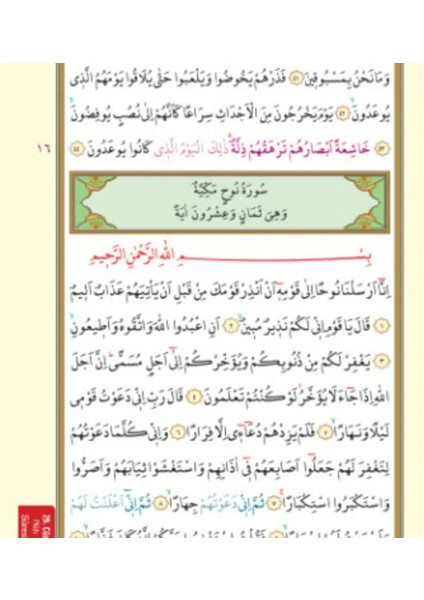 وَمَا نَحْنُ بِمَسْبُوقٖينَ ﴿٤١﴾ فَذَرْهُمْ يَخُوضُوا وَيَلْعَبُوا حَتّٰى يُلَاقُوا يَوْمَهُمُ الَّذٖى
يُوعَدُونَ ﴿٤٢﴾ يَوْمَ يَخْرُجُونَ مِنَ الْاَجْدَاثِ سِرَاعًا كَاَنَّهُمْ اِلٰى نُصُبٍ يُوفِضُونَ
﴿٤٣﴾ خَاشِعَةً اَبْصَارُهُمْ تَرْهَقُهُمْ ذِلَّةٌ ذٰلِكَ الْيَوْمُ الَّذٖى كَانُوا يُوعَدُونَ ﴿٤٤﴾
١٦
سُورَةُ نُوحٍ مَكِّيَّةٌ
وَهِىَ ثَمَانٍ وَعِشْرُونَ اٰيَةً
بِسْمِ اللهِ الرَّحْمٰنِ الرَّحٖيمِ
اِنَّٓا اَرْسَلْنَا نُوحًا اِلٰى قَوْمِهٖٓ اَنْ اَنْذِرْ قَوْمَكَ مِنْ قَبْلِ اَنْ يَأْتِيَهُمْ عَذَابٌ اَلٖيمٌ
﴿١﴾ قَالَ يَا قَوْمِ اِنّٖى لَكُمْ نَذٖيرٌ مُبٖينٌ ﴿٢﴾ اَنِ اعْبُدُوا اللهَ وَاتَّقُوهُ وَاَطٖيعُونِ
﴿٣﴾ يَغْفِرْ لَكُمْ مِنْ ذُنُوبِكُمْ وَيُؤَخِّرْكُمْ اِلٰٓى اَجَلٍ مُسَمًّى اِنَّ اَجَلَ
اللهِ اِذَا جَٓاءَ لَا يُؤَخَّرُ لَوْ كُنْتُمْ تَعْلَمُونَ ﴿٤﴾ قَالَ رَبِّ اِنّٖى دَعَوْتُ قَوْمٖى
لَيْلًا وَنَهَارًا ﴿٥﴾ فَلَمْ يَزِدْهُمْ دُعَٓاءٖٓى اِلَّا فِرَارًا ﴿٦﴾ وَاِنّٖى كُلَّمَا دَعَوْتُهُمْ
لِتَغْفِرَ لَهُمْ جَعَلُٓوا اَصَابِعَهُمْ فٖٓى اٰذَانِهِمْ وَاسْتَغْشَوْا ثِيَابَهُمْ وَاَصَرُّوا
وَاسْتَكْبَرُوا اسْتِكْبَارًا ﴿٧﴾ ثُمَّ اِنّٖى دَعَوْتُهُمْ جِهَارًا ﴿٨﴾ ثُمَّ اِنّٖٓى اَعْلَنْتُ لَهُمْ
29. Cüz
Nûh
Sûresi